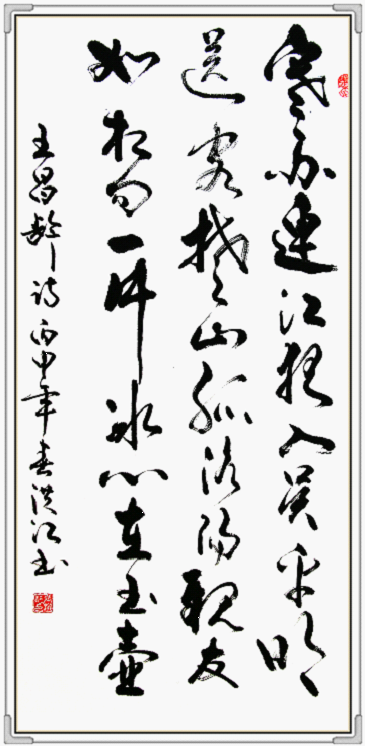 寒雨連江夜入吳平明
送客楚山孤洛陽親友
如相问一片冰心在玉壺
王昌齡诗丙申年春洪江书